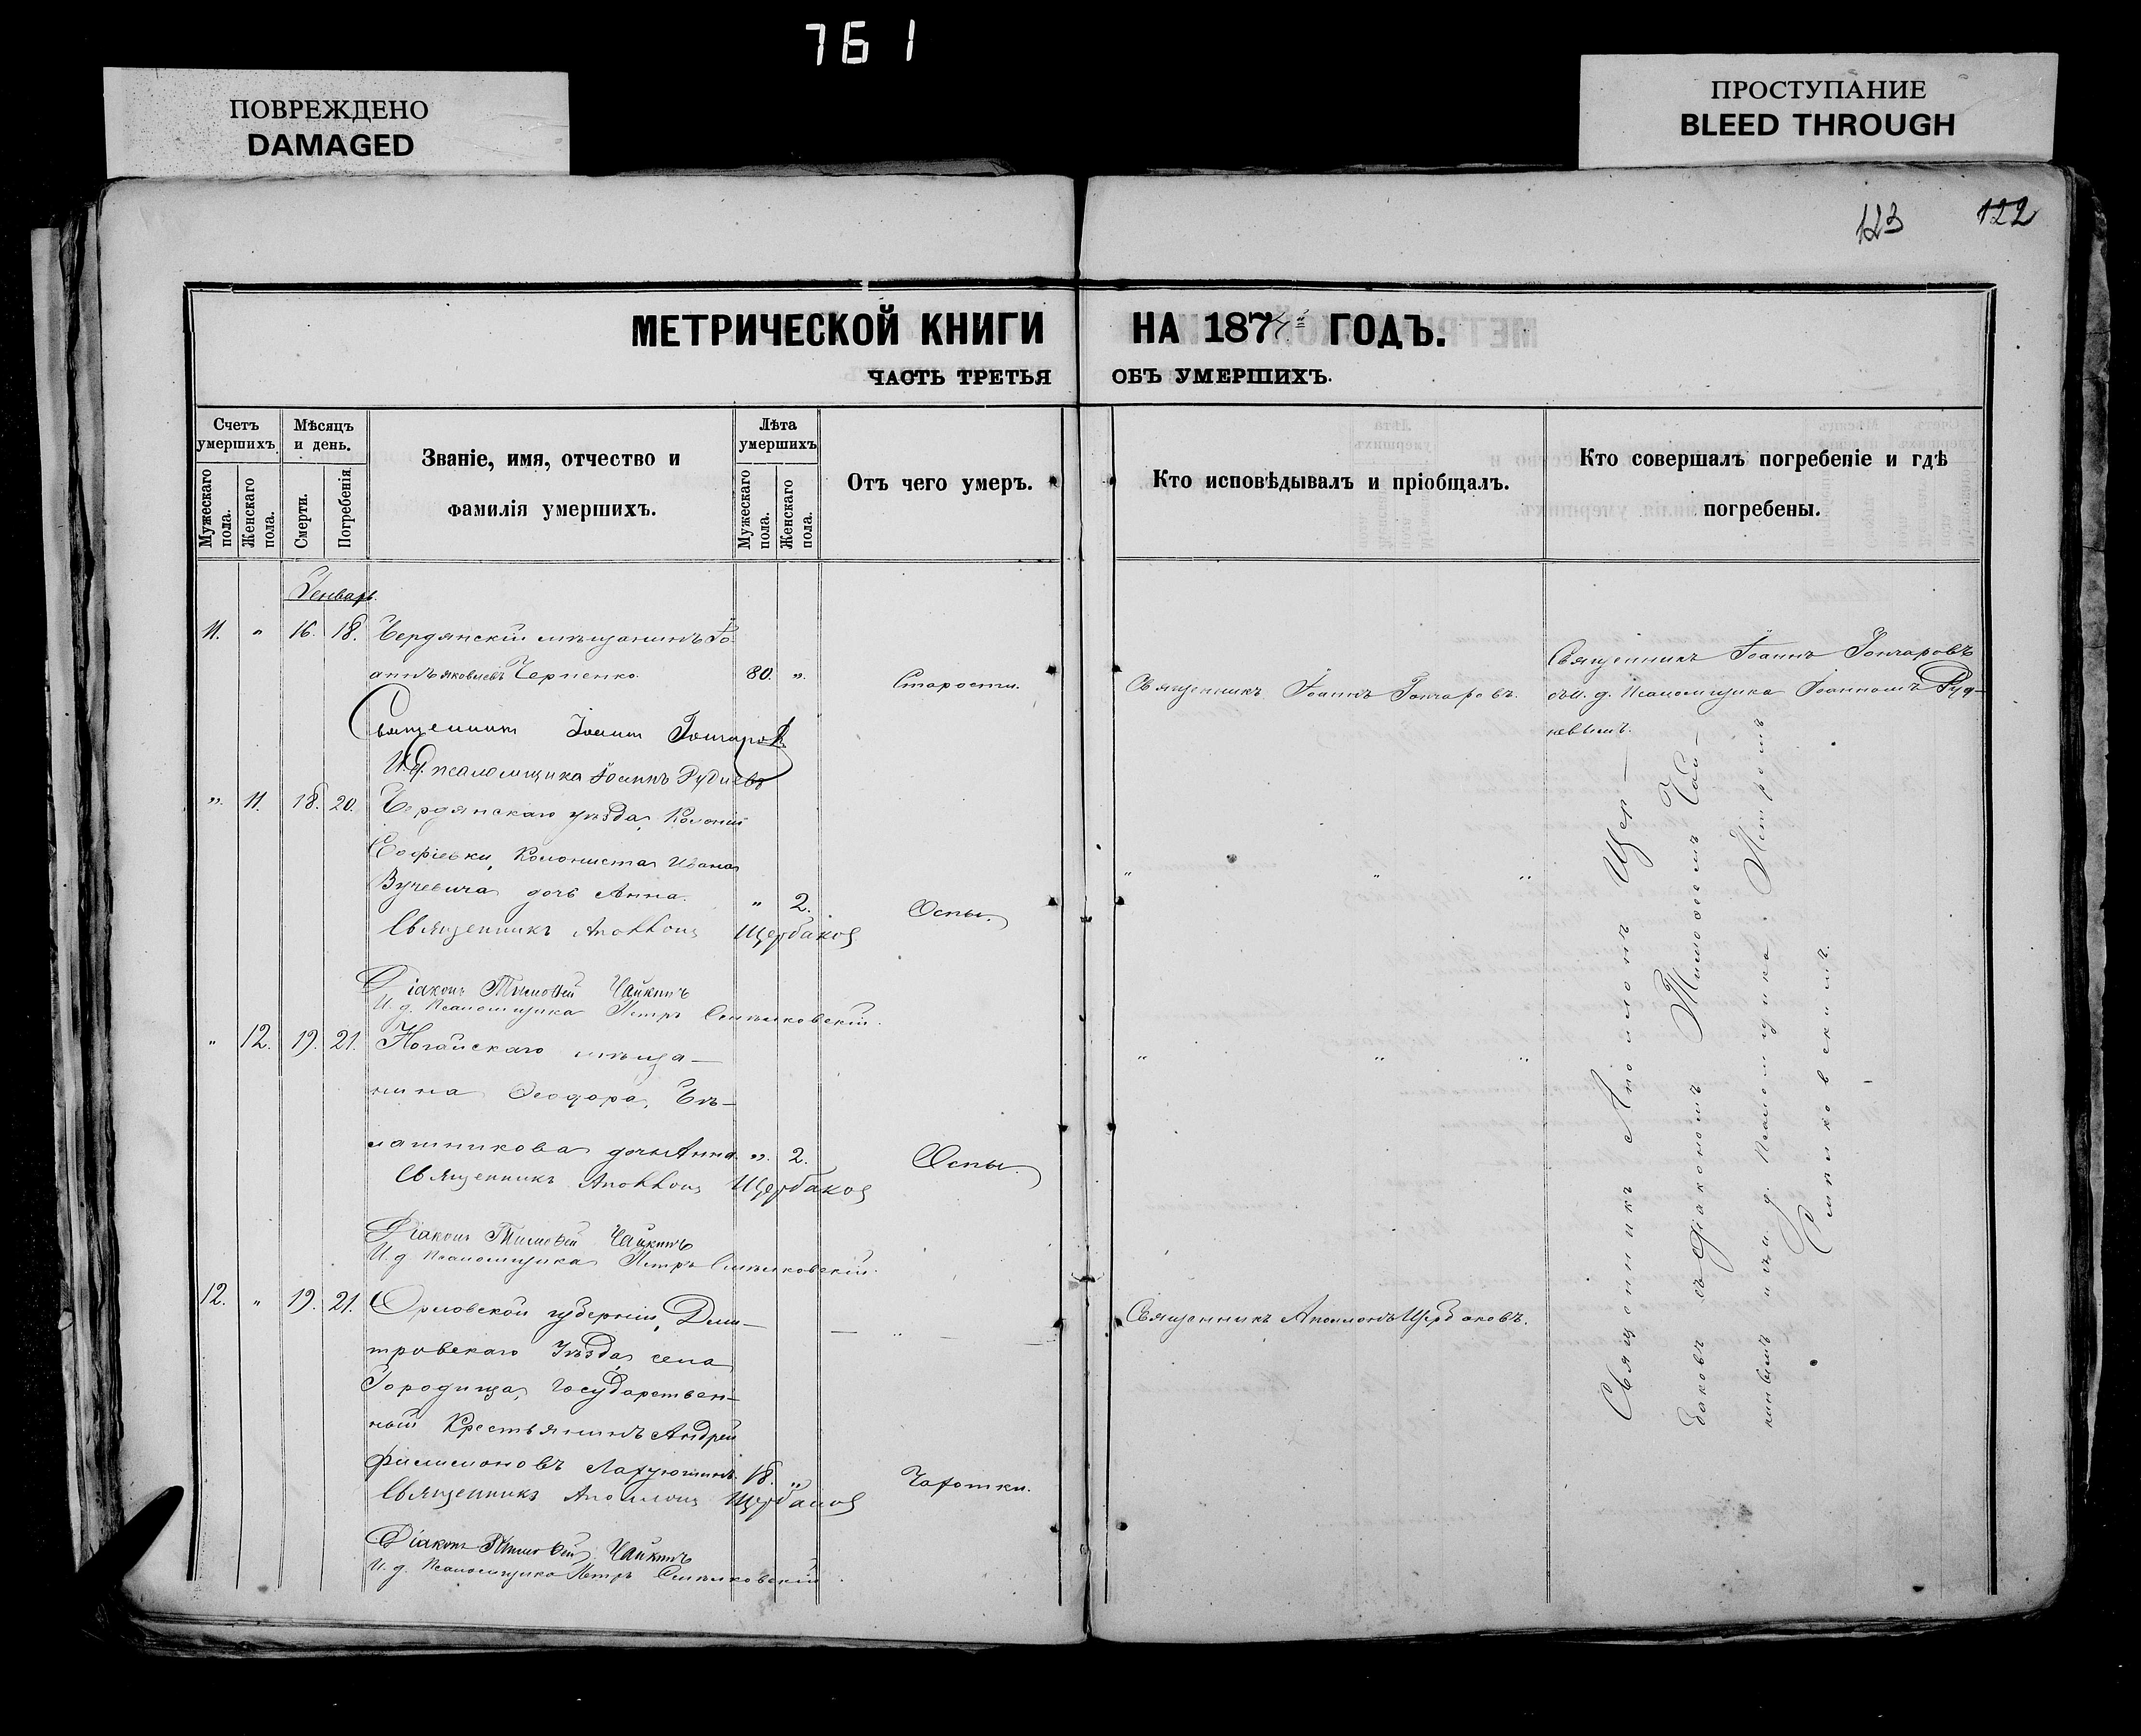 761
ПОВРЕЖДЕНО
DAMAGED
ПРОСТУПАНИЕ
BLEED THROUGH
123 122
МЕТРИЧЕСКОЙ КНИГИ НА 1874й ГОДЪ.
ЧАСТЬ ТРЕТЬЯ ОБЪ УМЕРШИХЪ.
Счетъ умершихъ
Мужескаго пола.
Женскаго пола.
Мѣсяцъ и день.
Смерти.
Погребенія
Званіе, имя, отчество и
фамилія умершихъ.
Лѣта умершихъ
Мужескаго пола.
Женскаго пола.
Отъ чего умеръ.
Кто исповѣдывалъ и пріобщалъ.
Кто совершалъ погребеніе и гдѣ
погребены.
Генварь.
11. " 16. 18. Бердянскій мѣщанинъ Іо-
аннъ Яковлевъ Черненко. 80. " Старости.
Священникъ Іоаннъ Гончаровъ.
Священникъ Іоаннъ Гончаровъ
съ и. д. Псаломщика Іоанномъ Руд-
невымъ.
Священникъ Іоаннъ Гончаров
И. д. псаломщика Іоаннъ Рудневъ
" 11. 18. 20. Бердянскаго уѣзда, Колоніи
Софіевки, Колониста Ивана
Вучевича дочь Анна. " 2. Оспы.
" " "
Священникъ Аполлонъ Щербаков
Діаконъ Тимофей Чайкинъ
И. д. Псаломщика Петръ
" 12. 19. 21. Ногайскаго мѣща-
нина Ѳеодора, Бѣ-
лашникова дочь Анна. " 2. Оспы.
" " "
Священникъ Аполлонъ Щербаков
Діаконъ Тимофей Чайкинъ
И. д. Псаломщика Петръ
12. " 19. 21. Орловской губерніи, Дми-
тровскаго Уѣзда, села
Городища, Государствен-
ный Крестьянинъ Андрей
Филимоновъ 18. " Чахотки.
Священникъ Аполлонъ Щербаковъ.
Священникъ Аполлонъ Щербаков
Діаконъ Тимофей Чайкинъ
И. д. Псаломщика Петръ
Священникъ Аполлонъ Щер-
баковъ съ Діакономъ Тимофеемъ Чай-
кинымъ и съ и. д. Псаломщика Петромъ